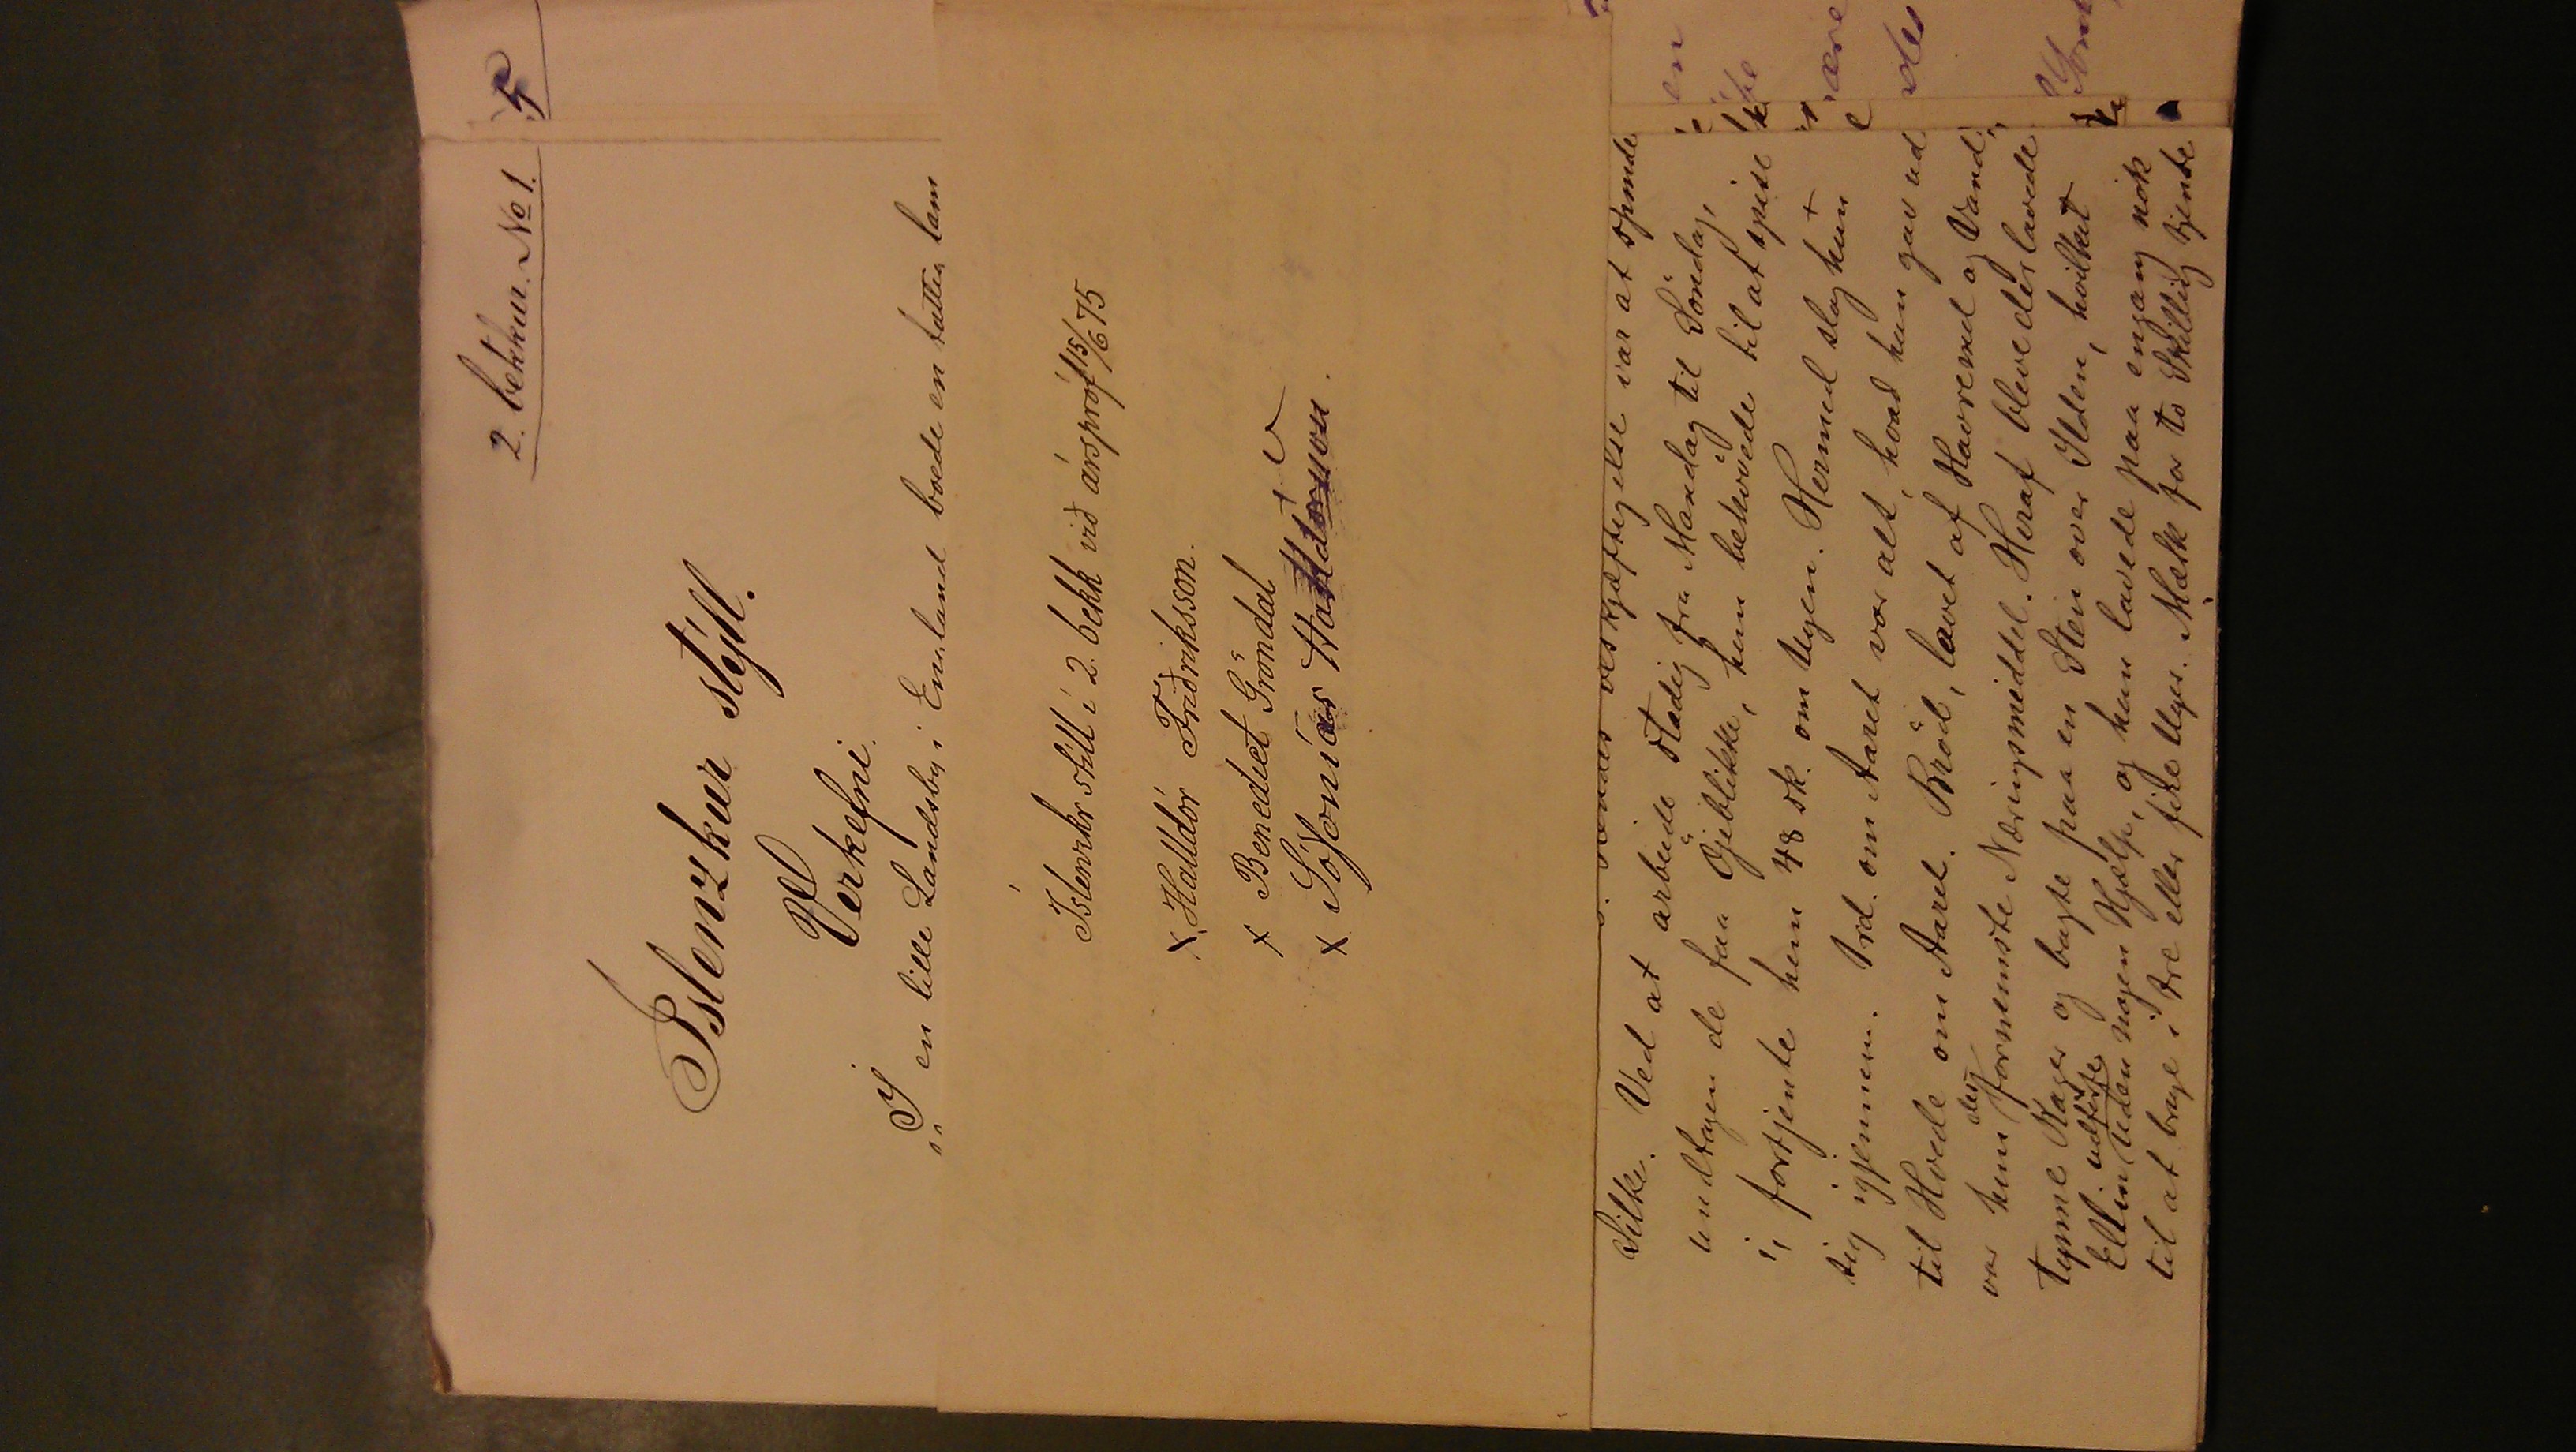 2. bekkur. No 1.
5
Íslenzkur stýll.
Verkefni.
I en lille Landsby i England boede en tatter lam
Íslenzkr stíll í 2. bekk við ársprof 15/6 75
x Halldór Friðriksson.
x Benedict Gröndal
x Sófonías Halldórsson.
Silke. Ved at arbeide stadig fra Mandag til Söndag,
beskjæftigelse var at spinde
undtagen de faa Öjeblikke, hun behövede til at spise
i, fortjente hun 48 sk. om Ugen. Hermed slog hun
sig igjennem. 1 rd. om Aaret var alt, hvad hun gav ud
til Hvede om Aaret. Bröd, lavet af Havremel og Vand,
var hendes fornemste Næringsmiddel. Heraf bleve der lavede
tynne Kager og bagte paa en Sten over Ilden, hvilket
Ellin udförte uden nogen Hjælp, og hun lavede paa engang nok
til at bruge i tre eller fire Uger. Mælk for to Skilling tjente